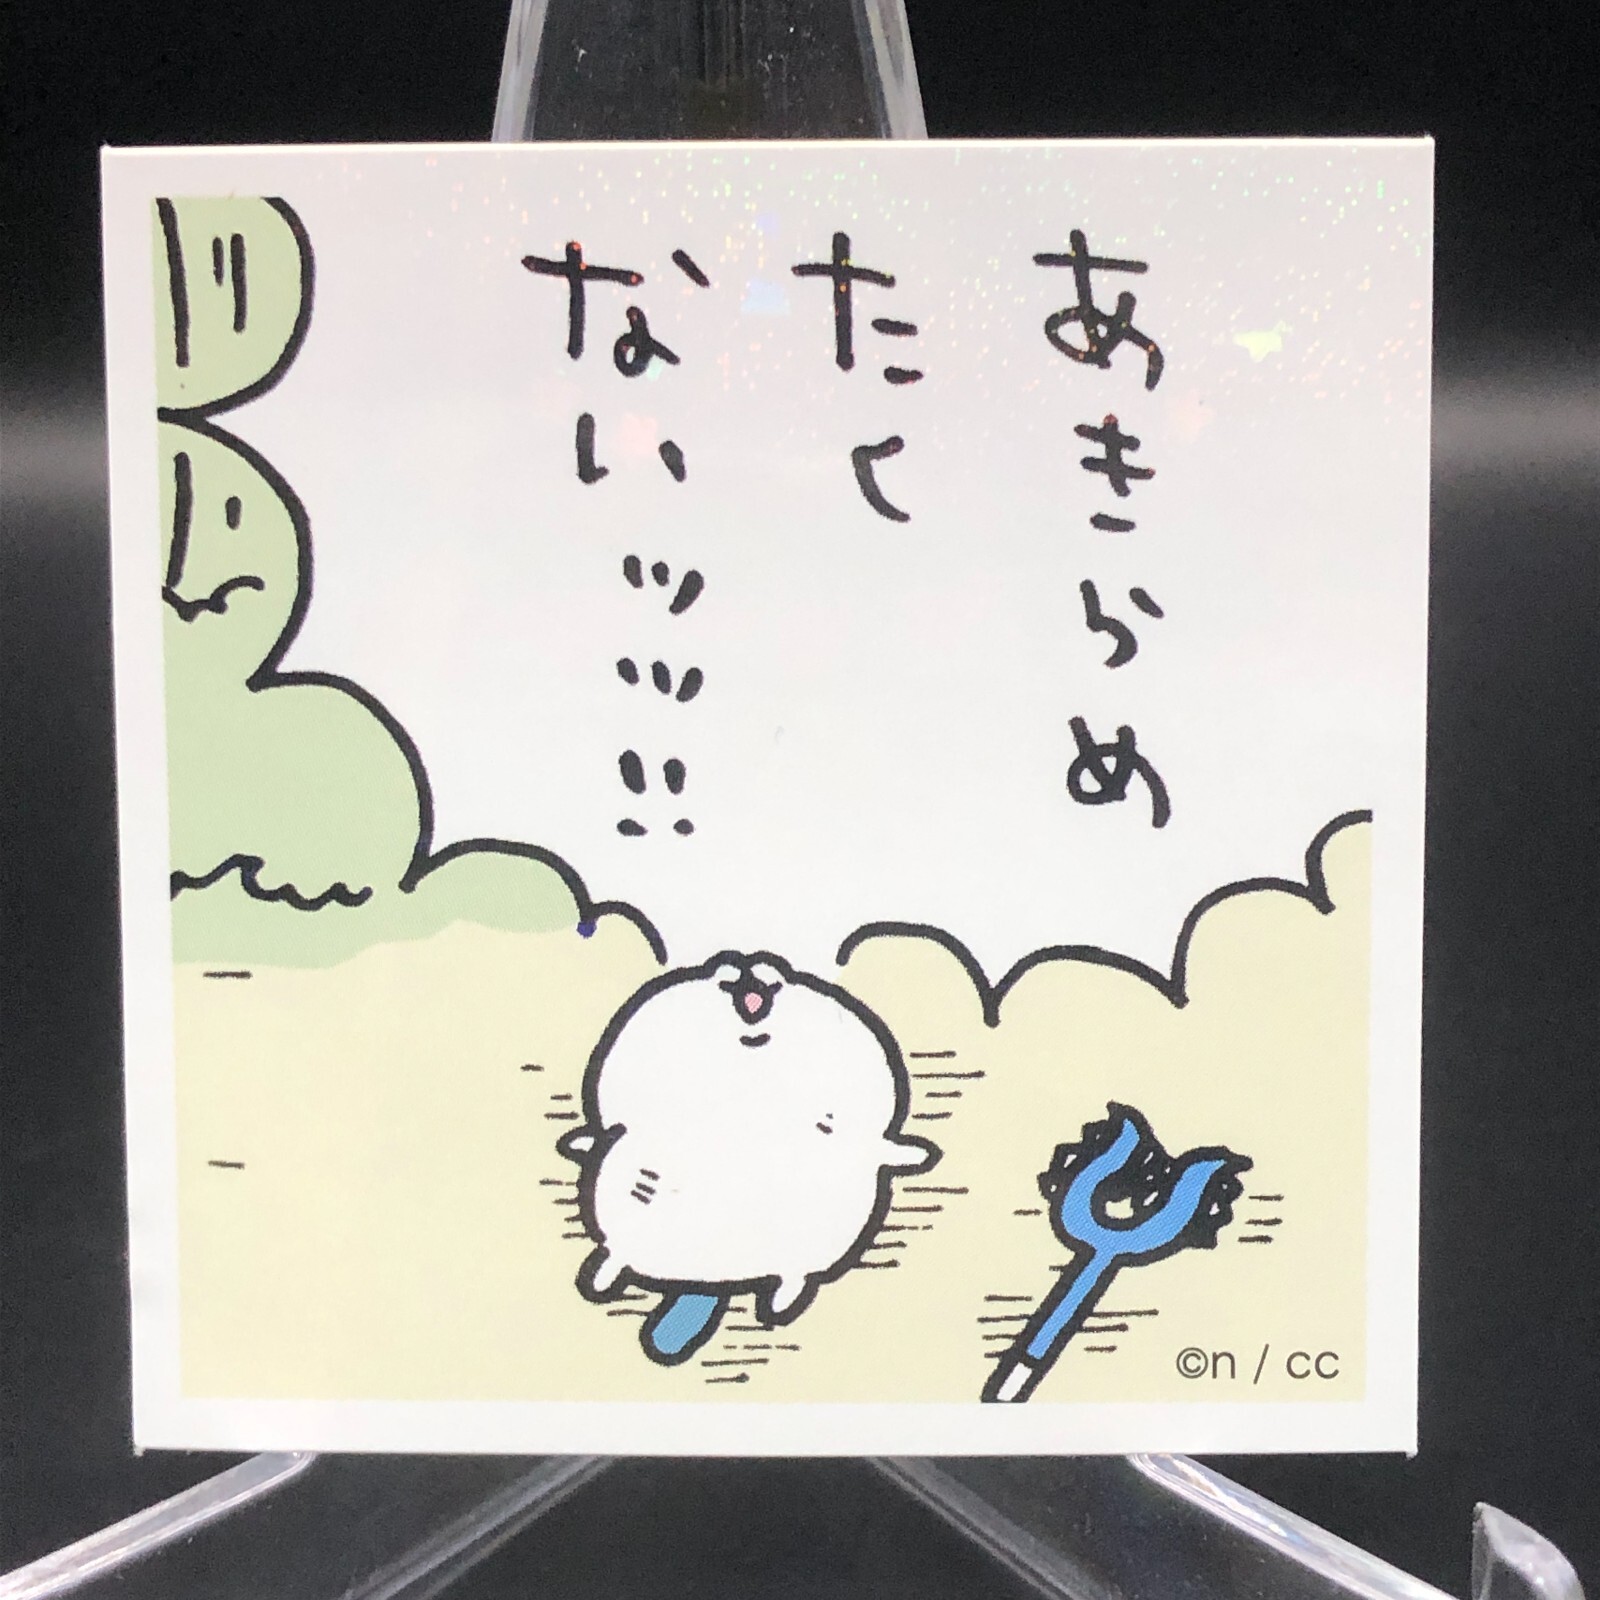 あきらめ
たく
ないッッ!!
©n / cc